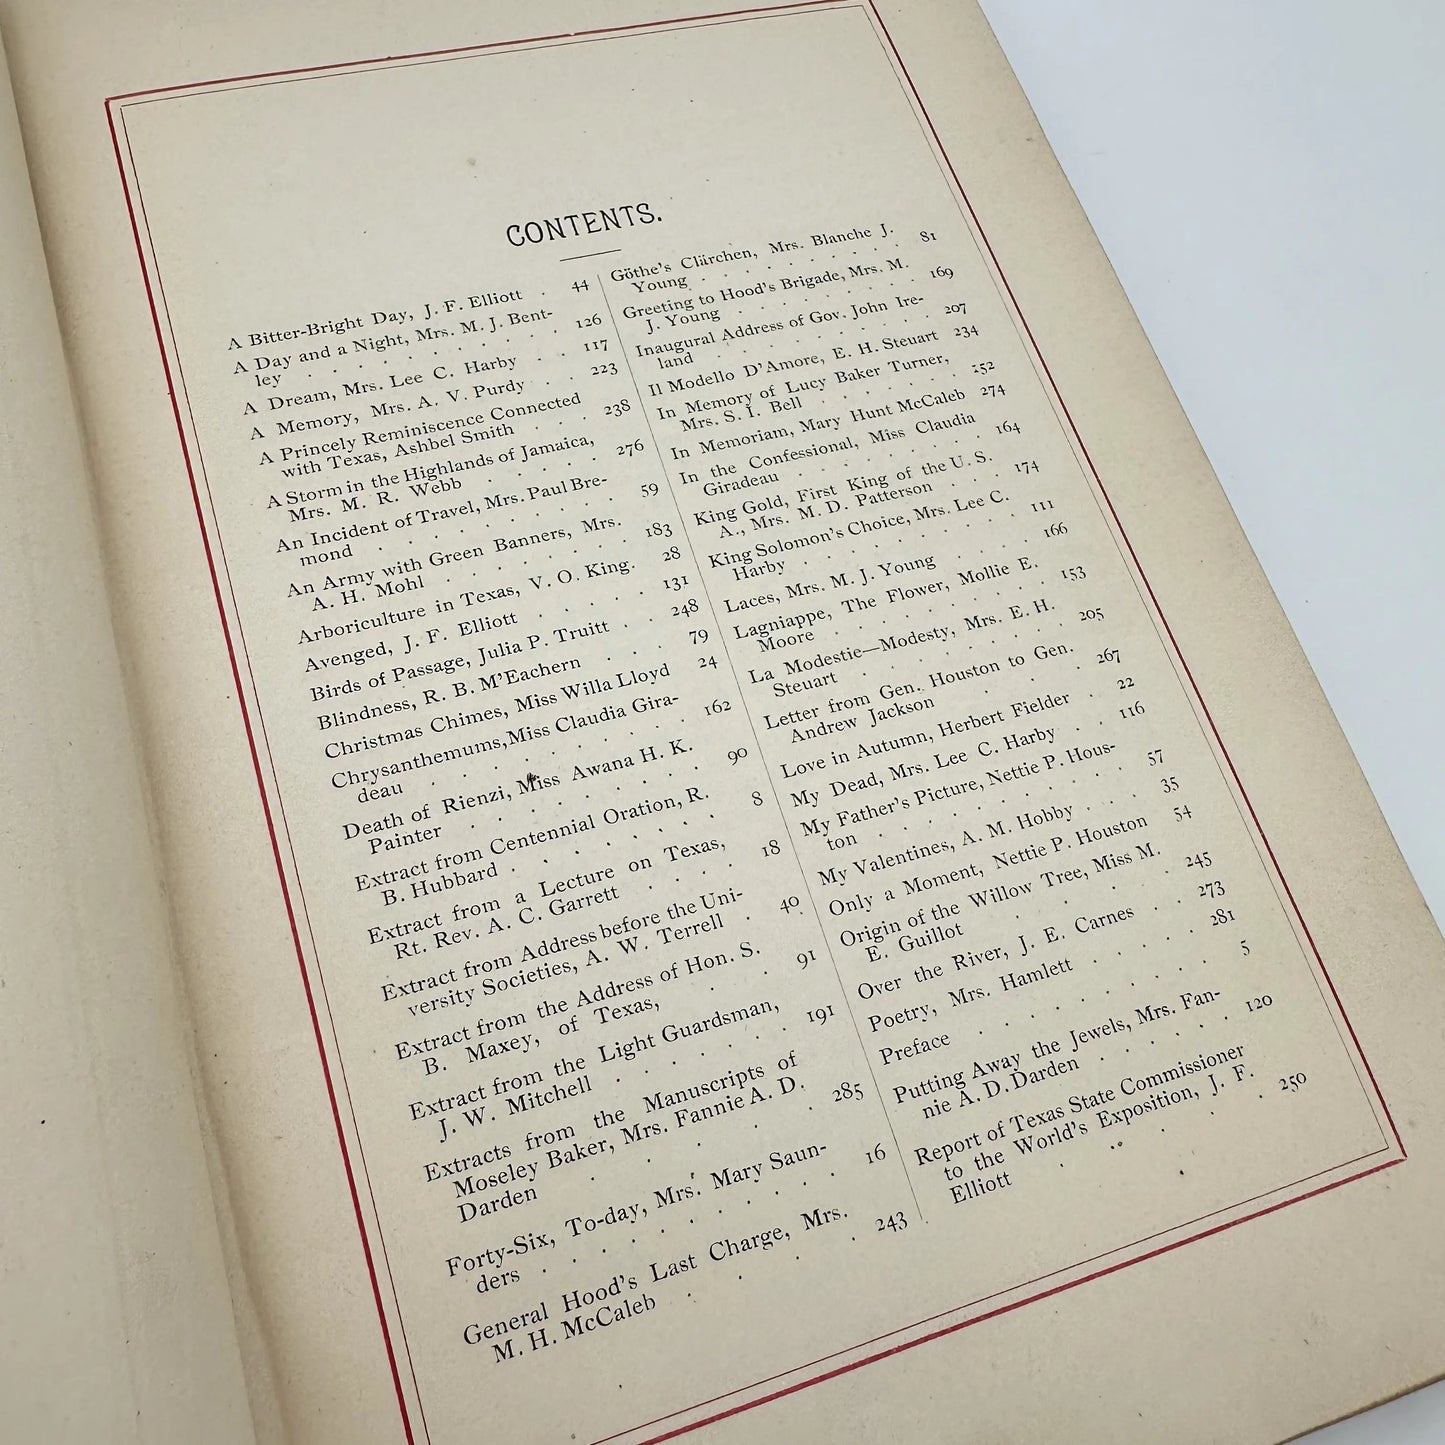 CONTENTS.
A Bitter-Bright Day, J. F. Elliott . 44
A Day and a Night, Mrs. M. J. Bent-
ley . . . . . . . . . 126
A Dream, Mrs. Lee C. Harby . . 117
A Memory, Mrs. A. V. Purdy . . 223
A Princely Reminiscence Connected
with Texas, Ashbel Smith . . . 238
A Storm in the Highlands of Jamaica,
Mrs. M. R. Webb . . . . . 276
An Incident of Travel, Mrs. Paul Bre-
mond . . . . . . . . 59
An Army with Green Banners, Mrs.
A. H. Mohl . . . . . . . 183
Arboriculture in Texas, V. O. King. 28
Avenged, J. F. Elliott . . . . . 131
Birds of Passage, Julia P. Truitt . . 248
Blindness, R. B. M'Eachern . . . 79
Christmas Chimes, Miss Willa Lloyd 24
Chrysanthemums, Miss Claudia Gira-
deau . . . . . . . . 162
Death of Rienzi, Miss Awana H. K.
Painter . . . . . . . . 90
Extract from Centennial Oration, R.
B. Hubbard . . . . . . . 8
Extract from a Lecture on Texas,
Rt. Rev. A. C. Garrett . . . . 18
Extract from Address before the Uni-
versity Societies, A. W. Terrell . 40
Extract from the Address of Hon. S.
B. Maxey, of Texas, . . 91
Extract from the Light Guardsman,
J. W. Mitchell . . . . . . 191
Extracts from the Manuscripts of
Moseley Baker, Mrs. Fannie A. D.
Darden . . . . . 285
Forty-Six, To-day, Mrs. Mary Saun-
ders . . . . . . . . 16
General Hood's Last Charge, Mrs.
M. H. McCaleb . . . . 243
Göthe's Clärchen, Mrs. Blanche J.
Young . . . . . . . . 81
Greeting to Hood's Brigade, Mrs. M.
J. Young . . . . . . . 169
Inaugural Address of Gov. John Ire-
land . . . . . . . . 207
Il Modello D'Amore, E. H. Steuart 234
In Memory of Lucy Baker Turner,
Mrs. S. I. Bell . . . . . . 152
In Memoriam, Mary Hunt McCaleb 274
In the Confessional, Miss Claudia
Giradeau . . . . . . . 164
King Gold, First King of the U. S.
A., Mrs. M. D. Patterson . . . 174
King Solomon's Choice, Mrs. Lee C.
Harby . . . . . . . . 111
Laces, Mrs. M. J. Young . . . . 166
Lagniappe, The Flower, Mollie E.
Moore . . . . . . . . 153
La Modestie—Modesty, Mrs. E. H.
Steuart . . . . . . . . 205
Letter from Gen. Houston to Gen.
Andrew Jackson . . . 267
Love in Autumn, Herbert Fielder . 22
My Dead, Mrs. Lee C. Harby . . 116
My Father's Picture, Nettie P. Hous-
ton . . . . . . . . 57
My Valentines, A. M. Hobby . . . 35
Only a Moment, Nettie P. Houston 54
Origin of the Willow Tree, Miss M.
E. Guillot . . . . . 245
Over the River, J. E. Carnes . . 273
Poetry, Mrs. Hamlett . . . . 281
Preface . . . . . . . 5
Putting Away the Jewels, Mrs. Fan-
nie A. D. Darden . . . . . . 120
Report of Texas State Commissioner
to the World's Exposition, J. F.
Elliott . . . . . 250